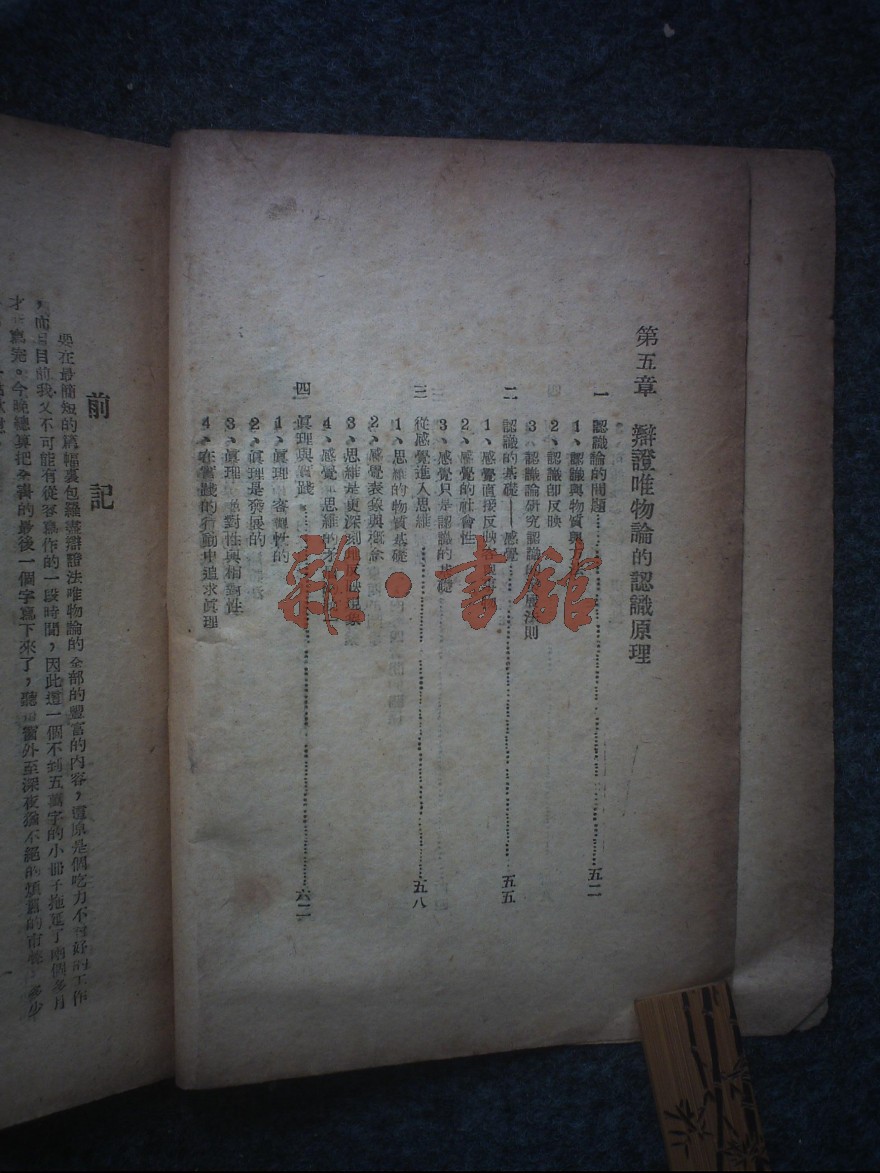 第五章 辯證唯物論的認識原理
一 認識論的問題 五二
1、認識與物質與
2、認識即反映
3、認識論研究認識的發展法則
二 認識的基礎——感覺 五五
1、感覺直接反映
2、感覺的社會性
3、感覺只是認識的基礎
三 從感覺進入思維 五八
1、思維的物質基礎
2、感覺表象與概念
3、思維是更深刻地反映現象
4、感覺 思維的
四 眞理與實踐 六二
1、眞理 客觀性的
2、眞理是發展的
3、眞理 絕對性與相對性
4、在實踐的行動中追求眞理
雜·書館
前記
要在最簡短的篇幅裏包羅盡辯證法唯物論的全部的豐富的內容，這原是個吃力不討好的工作
，而目前我又不可能有從容寫作的一段時間，因此這一個不到五萬字的小冊子拖延了兩個多月
才 寫完。今晚總算把全書的最後一個字寫下來了，聽 窗外至深夜猶不絕的煩囂的市聲